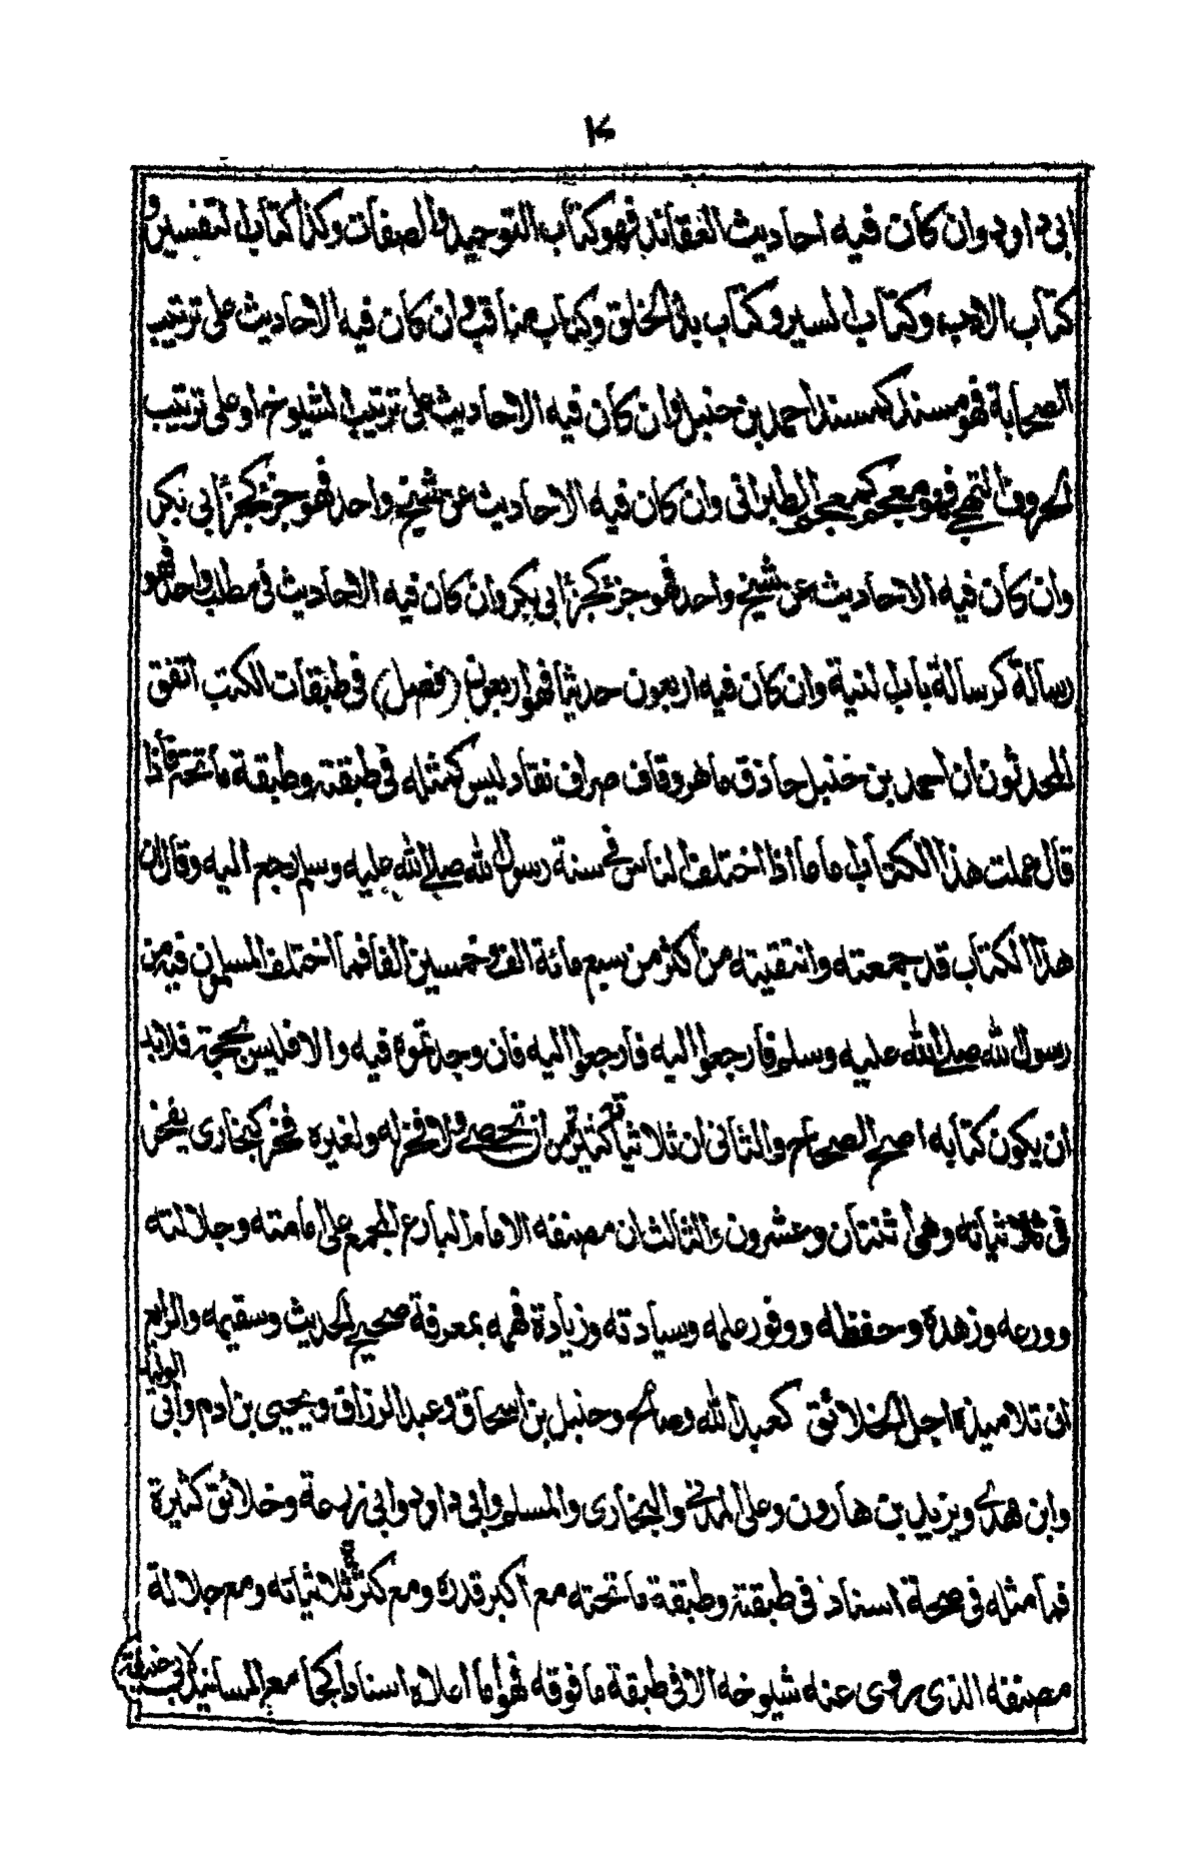 ابى داود وان كان فيه احاديث العقائد فهو كتاب التوحيد والصفات وكذا كتاب التفسير و
كتاب الادب وكتاب السير وكتاب بدأ الخلق وكتاب مناقب وان كان فيه الاحاديث على ترتيب
الصحابة فهو مسند كمسند احمد بن حنبل وان كان فيه الاحاديث على ترتيب الشيوخ او على ترتيب
الحروف التهجى فهو معجم كمعجم الطبرانى وان كان فيه الاحاديث عن شيخ واحد فهو جزء كجزأ ابى بكر
وان كان فيه الاحاديث عن شيخ واحد فهو جزء كجزأ ابى بكر وان كان فيه الاحاديث فى مطلب واحد فهو
رسالة كرسالة باب النية وان كان فيه اربعون حديثا فهو اربعون (فصل) فى طبقات الكتب اتفق
المحدثون ان احمد بن حنبل حاذق ماهر وقاف صراف نقاد ليس كمثله فى طبقته وطبقة ما تحته قاذا
قال عملت هذا الكتاب ماما اذا اختلف الناس فى سنة رسول الله صلى الله عليه وسلم رجع اليه وقال ان
هذا الكتاب قد جمعته وانتقيته من اكثر من سبع مائة الف وخمسين الفا فما اختلف المسلمون فيه من
رسول الله صلى الله عليه وسلم فارجعوا اليه فارجعوا اليه فان وجدتموه فيه والا فليس بحجة فلابد
ان يكون كتابه اصح الصحاح والثانى ان ثلاثياته كثيرة من ان تحصى ولا فخر له ولغيره فخر كبخارى يفخر
فى ثلاثياته وهى اثنتان وعشرون والثالث ان مصنفه الامام البارع المجمع على امامته وجلالته
وورعه وزهده وحفظه ووفور علمه وسيادته وزيادة فهمه بمعرفة صحيح الحديث وسقيمه والرابع
ان تلاميذه اجل الخلائق كعبد الله وصالح وحنبل بن اسحاق وعبد الرزاق ويحيى بن ادم وابى الوليد
وابن هدى ويزيد بن هارون وعلى المدنى والبخارى والمسلم وابى داود وابى زرعة وخلائق كثيرة
فما مثله فى صحة اسناد فى طبقته وطبقة ما تحته مع اكبر قدره ومع كثرة ثلاثياته ومع جلالة
مصنفه الذى روى عنه شيوخه الا فى طبقة ما فوقه فهو اما اعلاه اسنادا كجامع المسانيد لابى حنيفة